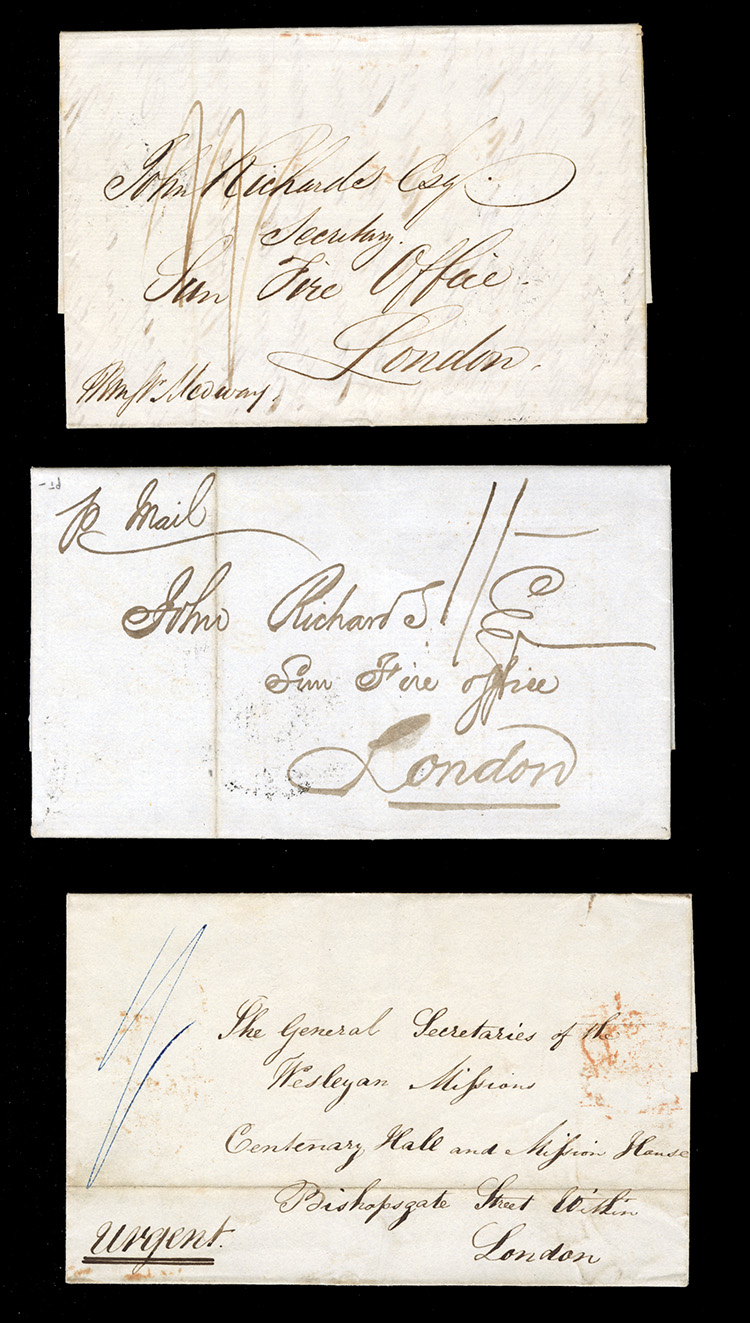 John Richards Esq.
Secretary.
Sun Fire Office.
London.
Medway.
p Mail
John Richards
Esq
Sun Fire office
London
The General Secretaries of the
Wesleyan Missions
Centenary Hall and Mission House
Bishopsgate Street Within
London
Urgent.